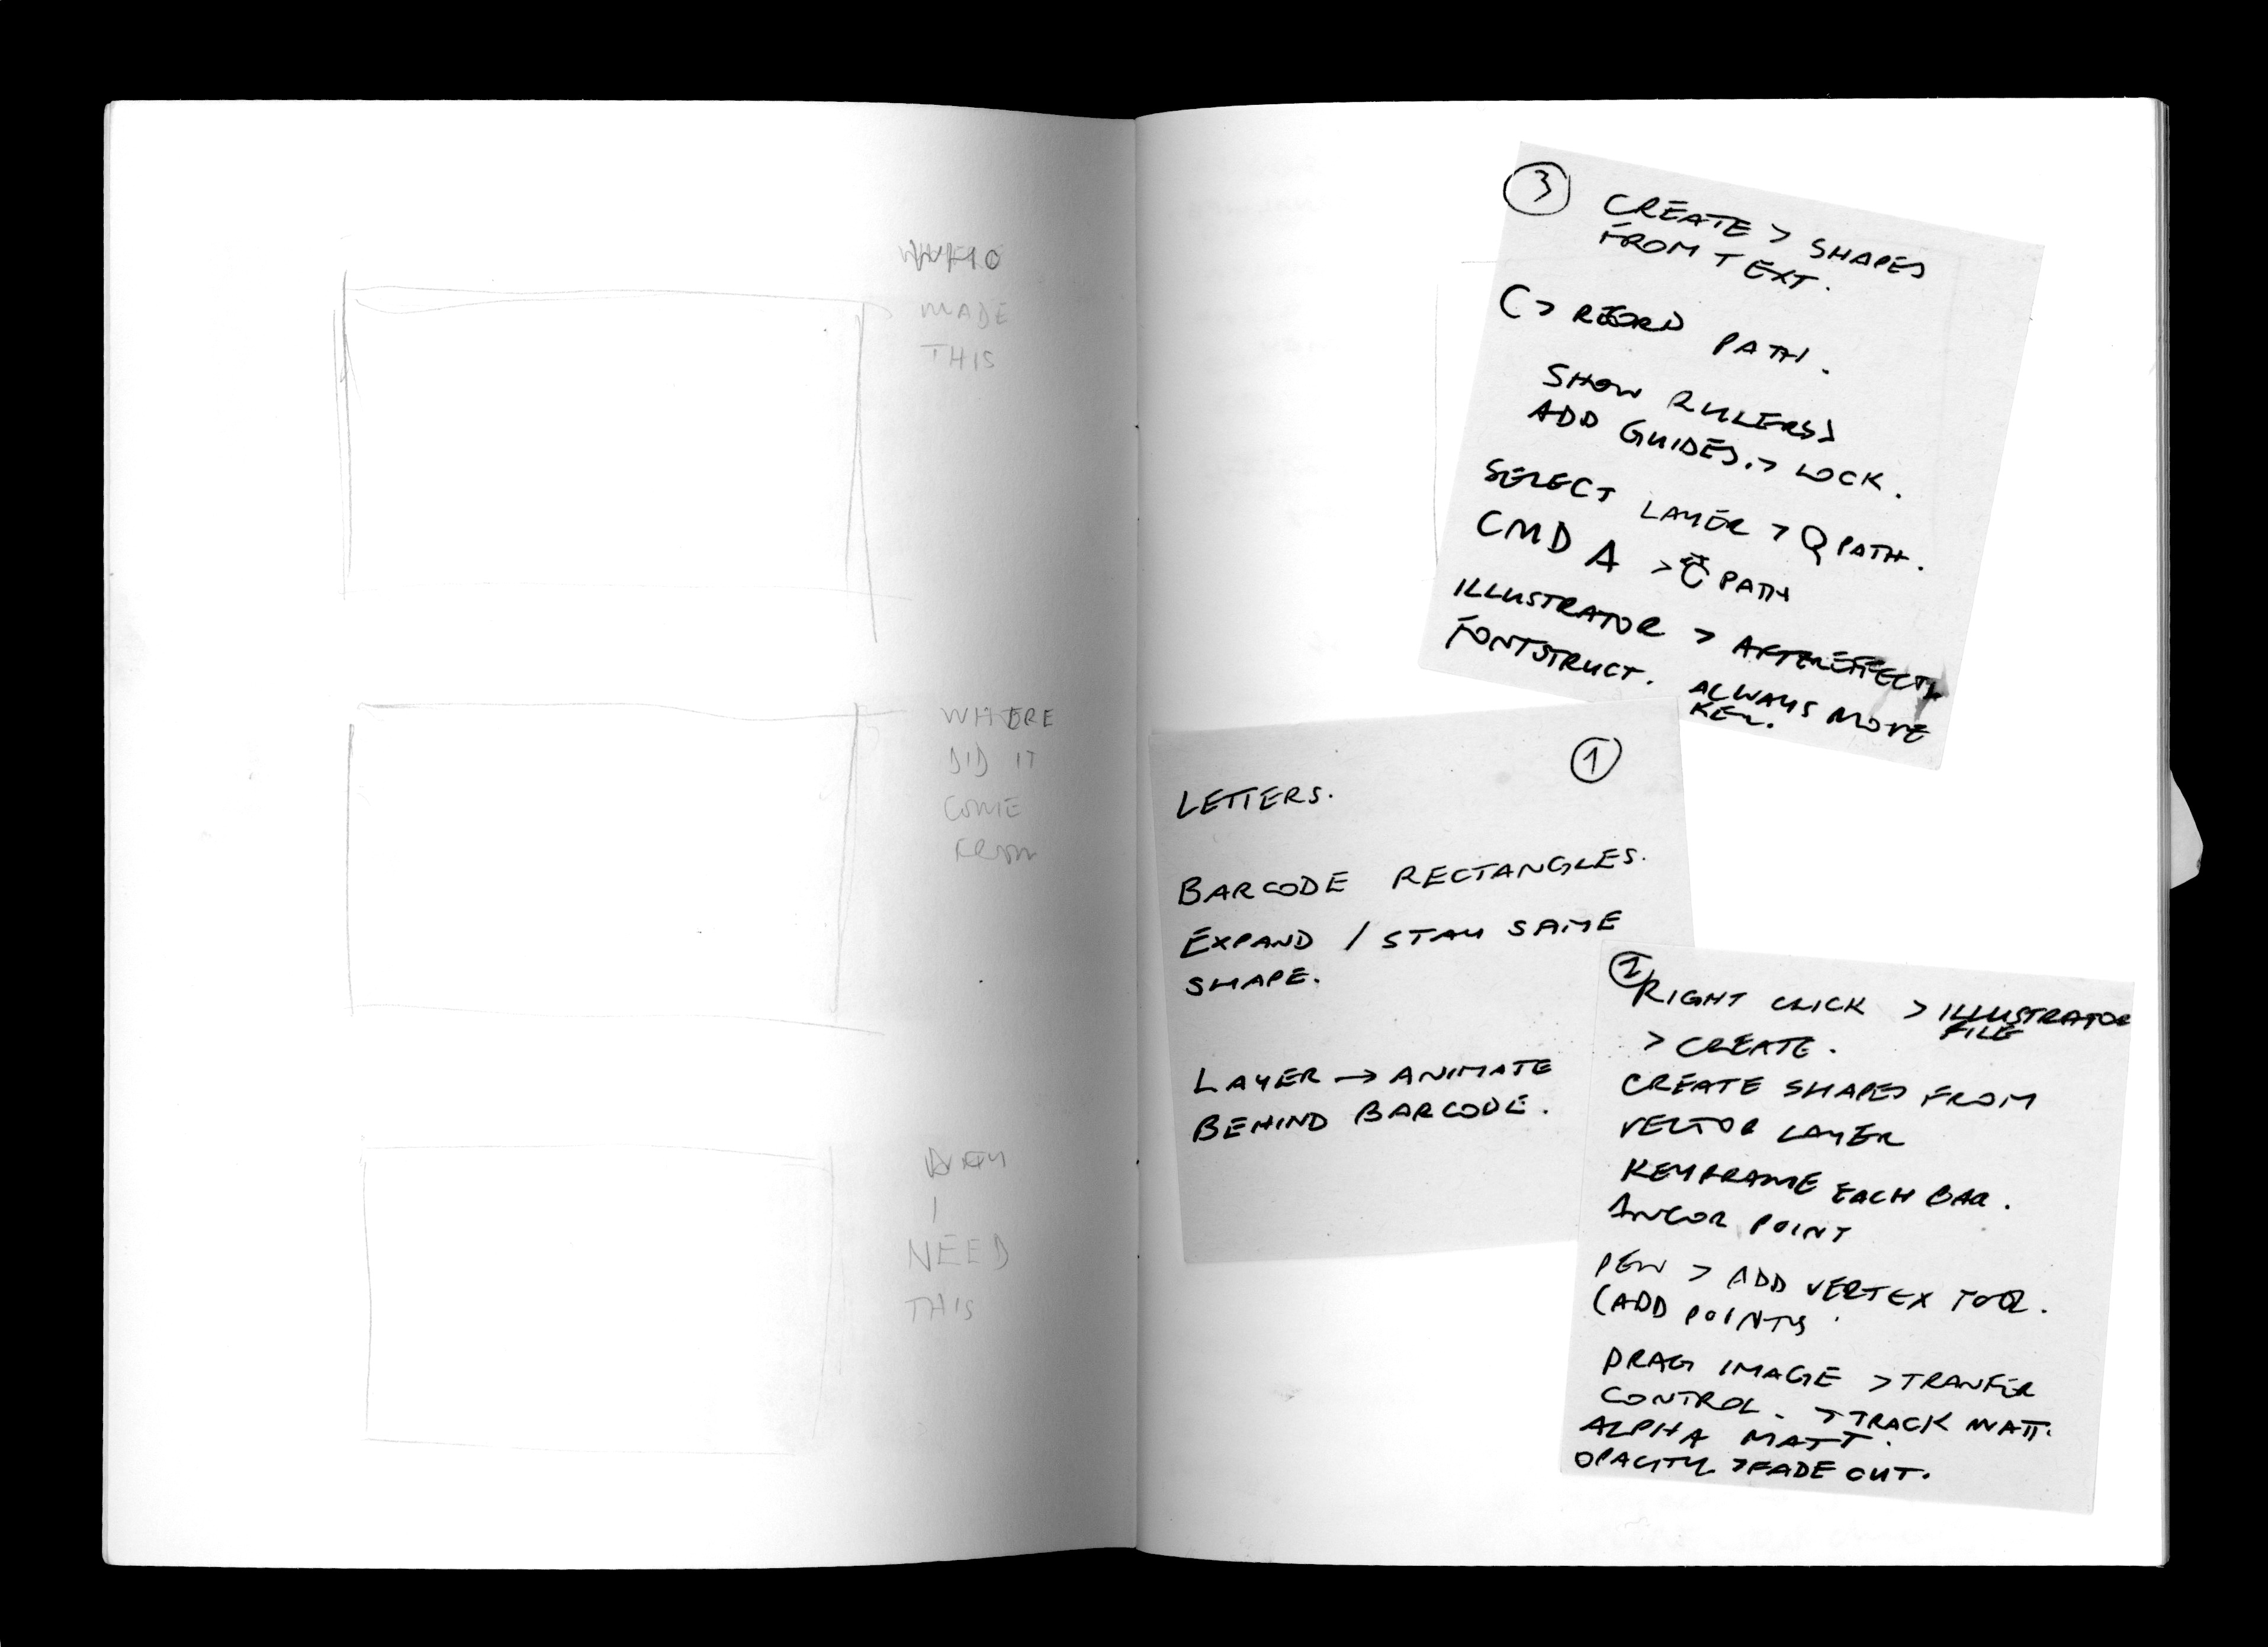 WHO
MADE
THIS
WHERE
DID IT
COME
FROM
I
NEED
THIS
3
CREATE > SHAPES
FROM TEXT.
C > RECORD PATH.
SHOW RULERS
ADD GUIDES. > LOCK.
SELECT LAYER > PATH.
CMD A > PATH
ILLUSTRATOR > AFTEREFFECTS
FONTSTRUCT. ALWAYS MOVE
KEY.
1
LETTERS.
BARCODE RECTANGLES.
EXPAND / STAY SAME
SHAPE.
LAYER → ANIMATE
BEHIND BARCODE.
2
RIGHT CLICK > ILLUSTRATOR
FILE
> CREATE.
CREATE SHAPES FROM
VECTOR LAYER
KEYFRAME EACH BAR.
ANCOR POINT
PEN > ADD VERTEX TOOL.
(ADD POINTS
DRAG IMAGE > TRANFER
CONTROL. > TRACK MATT.
ALPHA MATT.
OPACITY > FADE OUT.